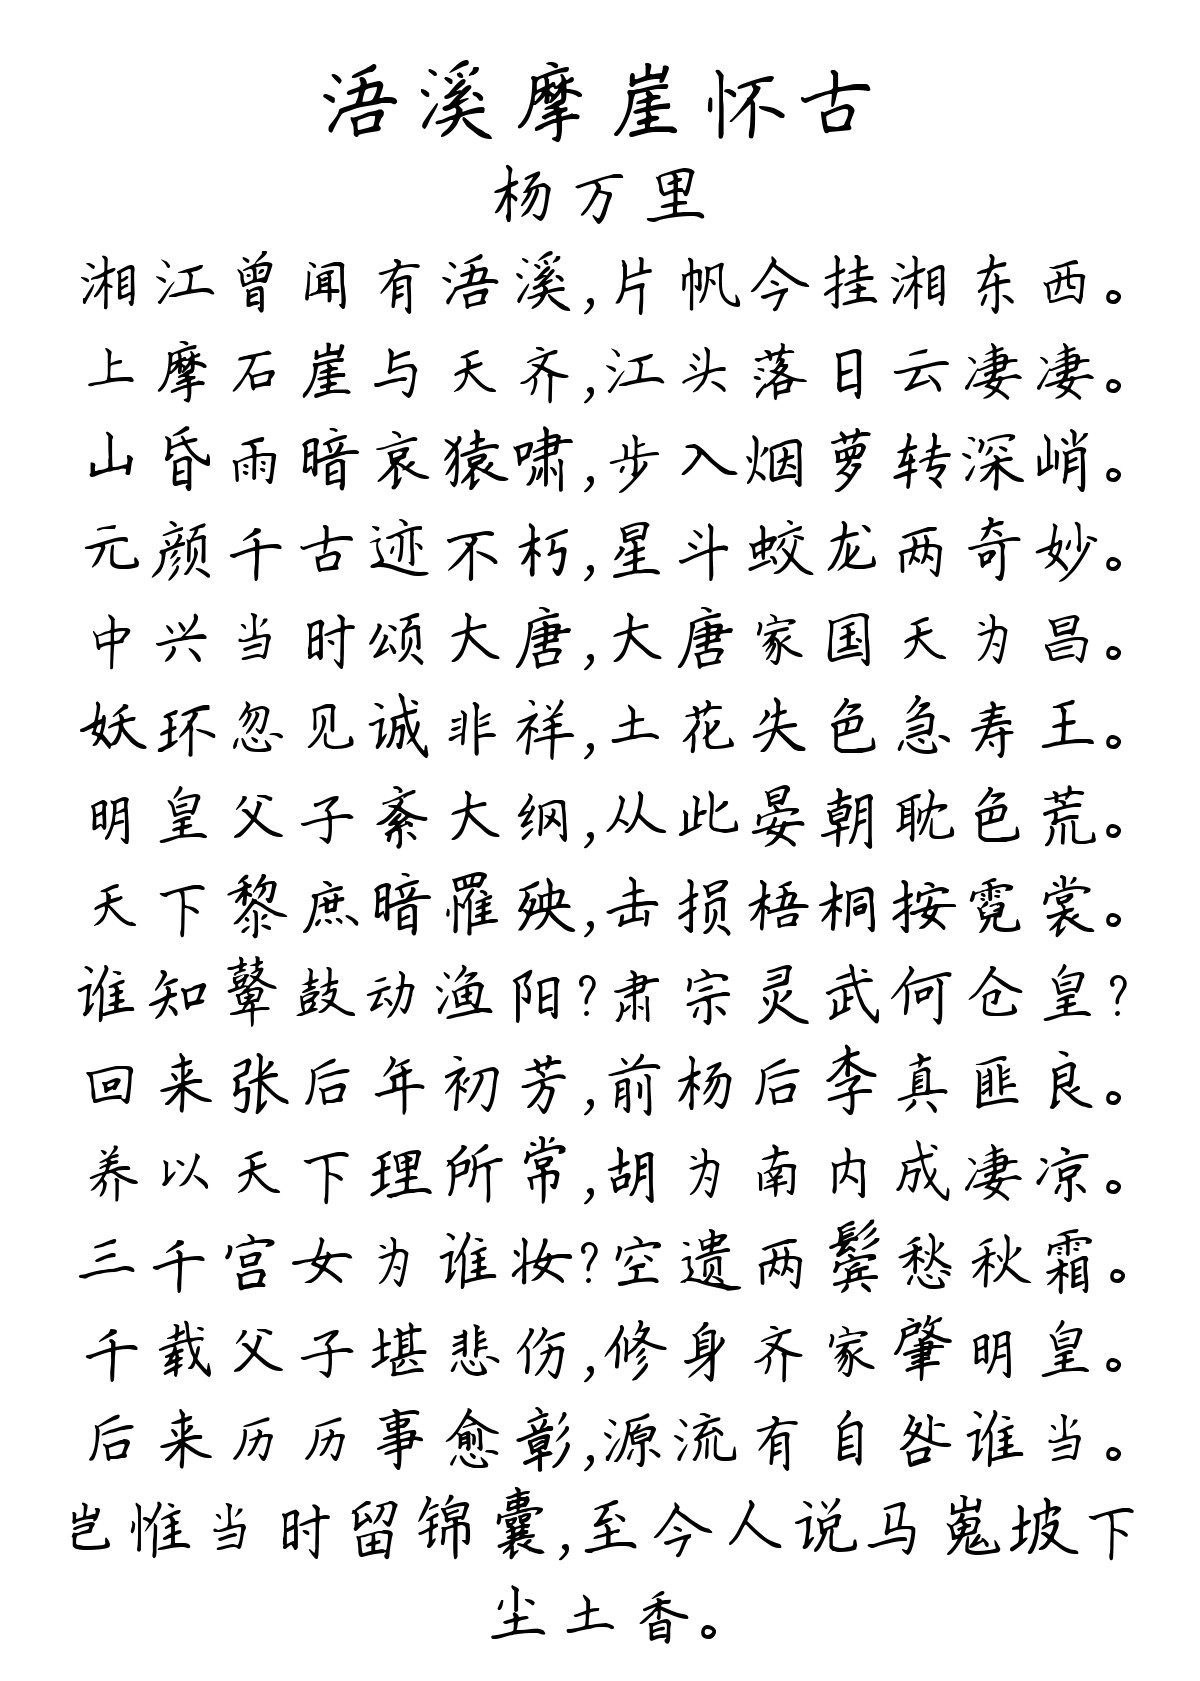 浯溪摩崖怀古
杨万里
湘江曾闻有浯溪,片帆今挂湘东西。
上摩石崖与天齐,江头落日云凄凄。
山昏雨暗哀猿啸,步入烟萝转深峭。
元颜千古迹不朽,星斗蛟龙两奇妙。
中兴当时颂大唐,大唐家国天为昌。
妖环忽见诚非祥,土花失色急寿王。
明皇父子紊大纲,从此晏朝耽色荒。
天下黎庶暗罹殃,击损梧桐按霓裳。
谁知鼙鼓动渔阳?肃宗灵武何仓皇?
回来张后年初芳,前杨后李真匪良。
养以天下理所常,胡为南内成凄凉。
三千宫女为谁妆?空遗两鬓愁秋霜。
千载父子堪悲伤,修身齐家肇明皇。
后来历历事愈彰,源流有自咎谁当。
岂惟当时留锦囊,至今人说马嵬坡下
尘土香。